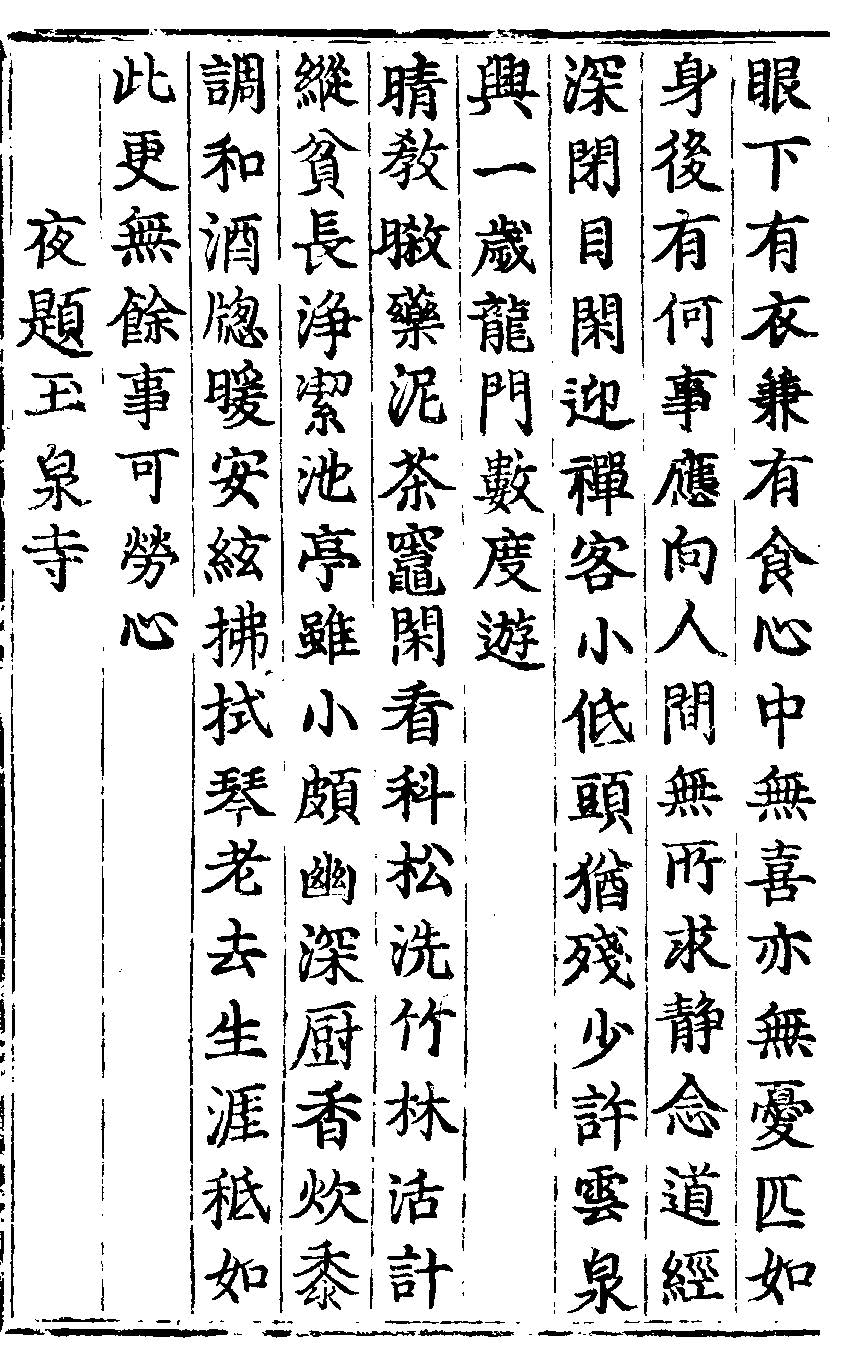 眼下有衣兼有食心中無喜亦無憂匹如
身後有何事應向人間無所求静念道經
深閉目閑迎禪客小低頭猶殘少許雲泉
興一歲龍門數度遊
晴教曬藥泥茶竈閑看科松洗竹林活計
縱貧長淨潔池亭雖小頗幽深厨香炊黍
調和酒牕暖安絃拂拭琴老去生涯秪如
此更無餘事可勞心
夜題玉泉寺